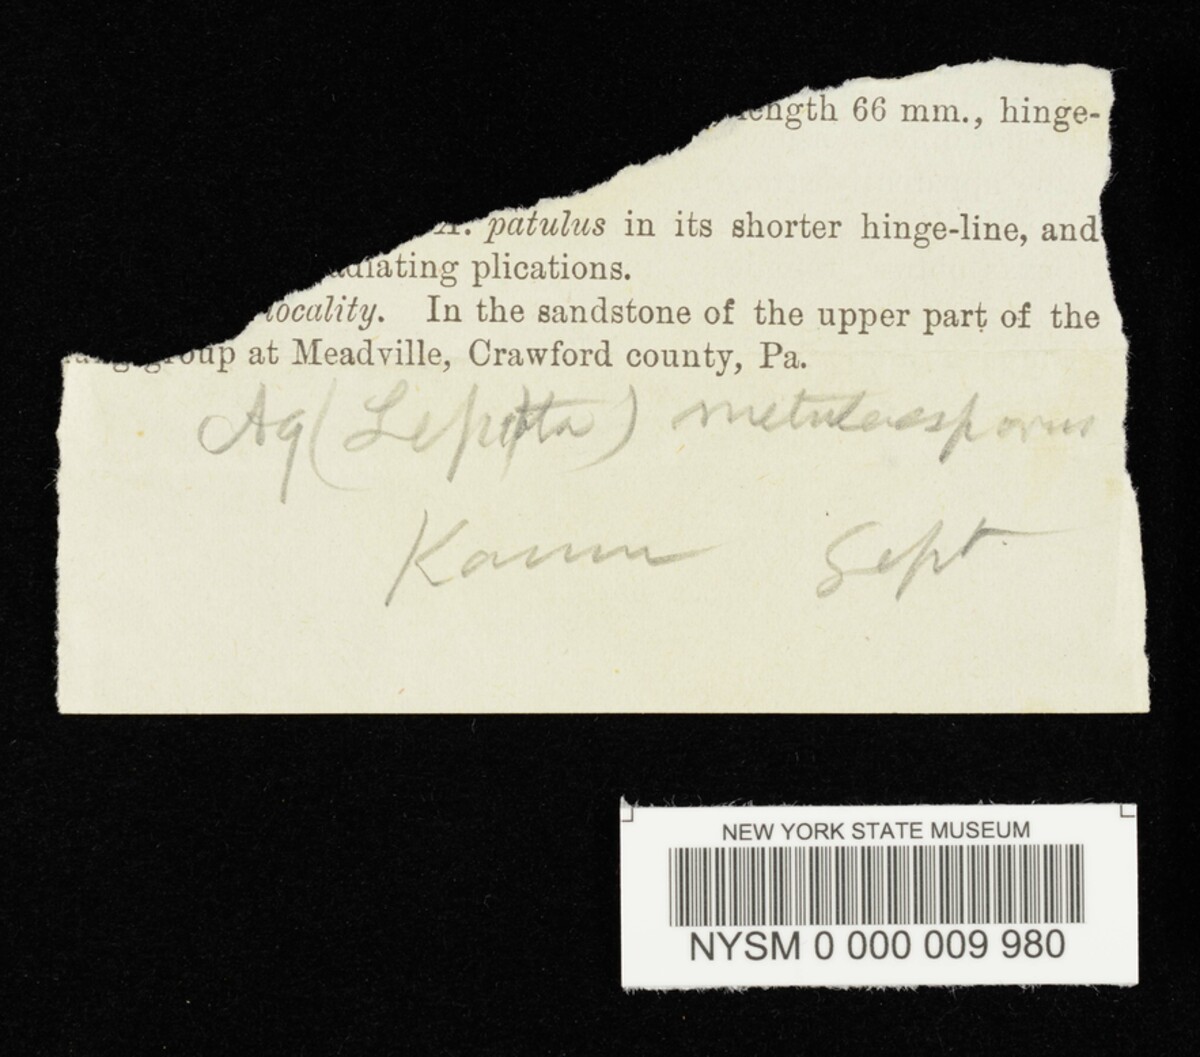 length 66 mm., hinge-
A. patulus in its shorter hinge-line, and
radiating plications.
locality. In the sandstone of the upper part of the
group at Meadville, Crawford county, Pa.
Ag (Lepiota) metulaesporus
Sept
NEW YORK STATE MUSEUM
NYSM 0 000 009 980